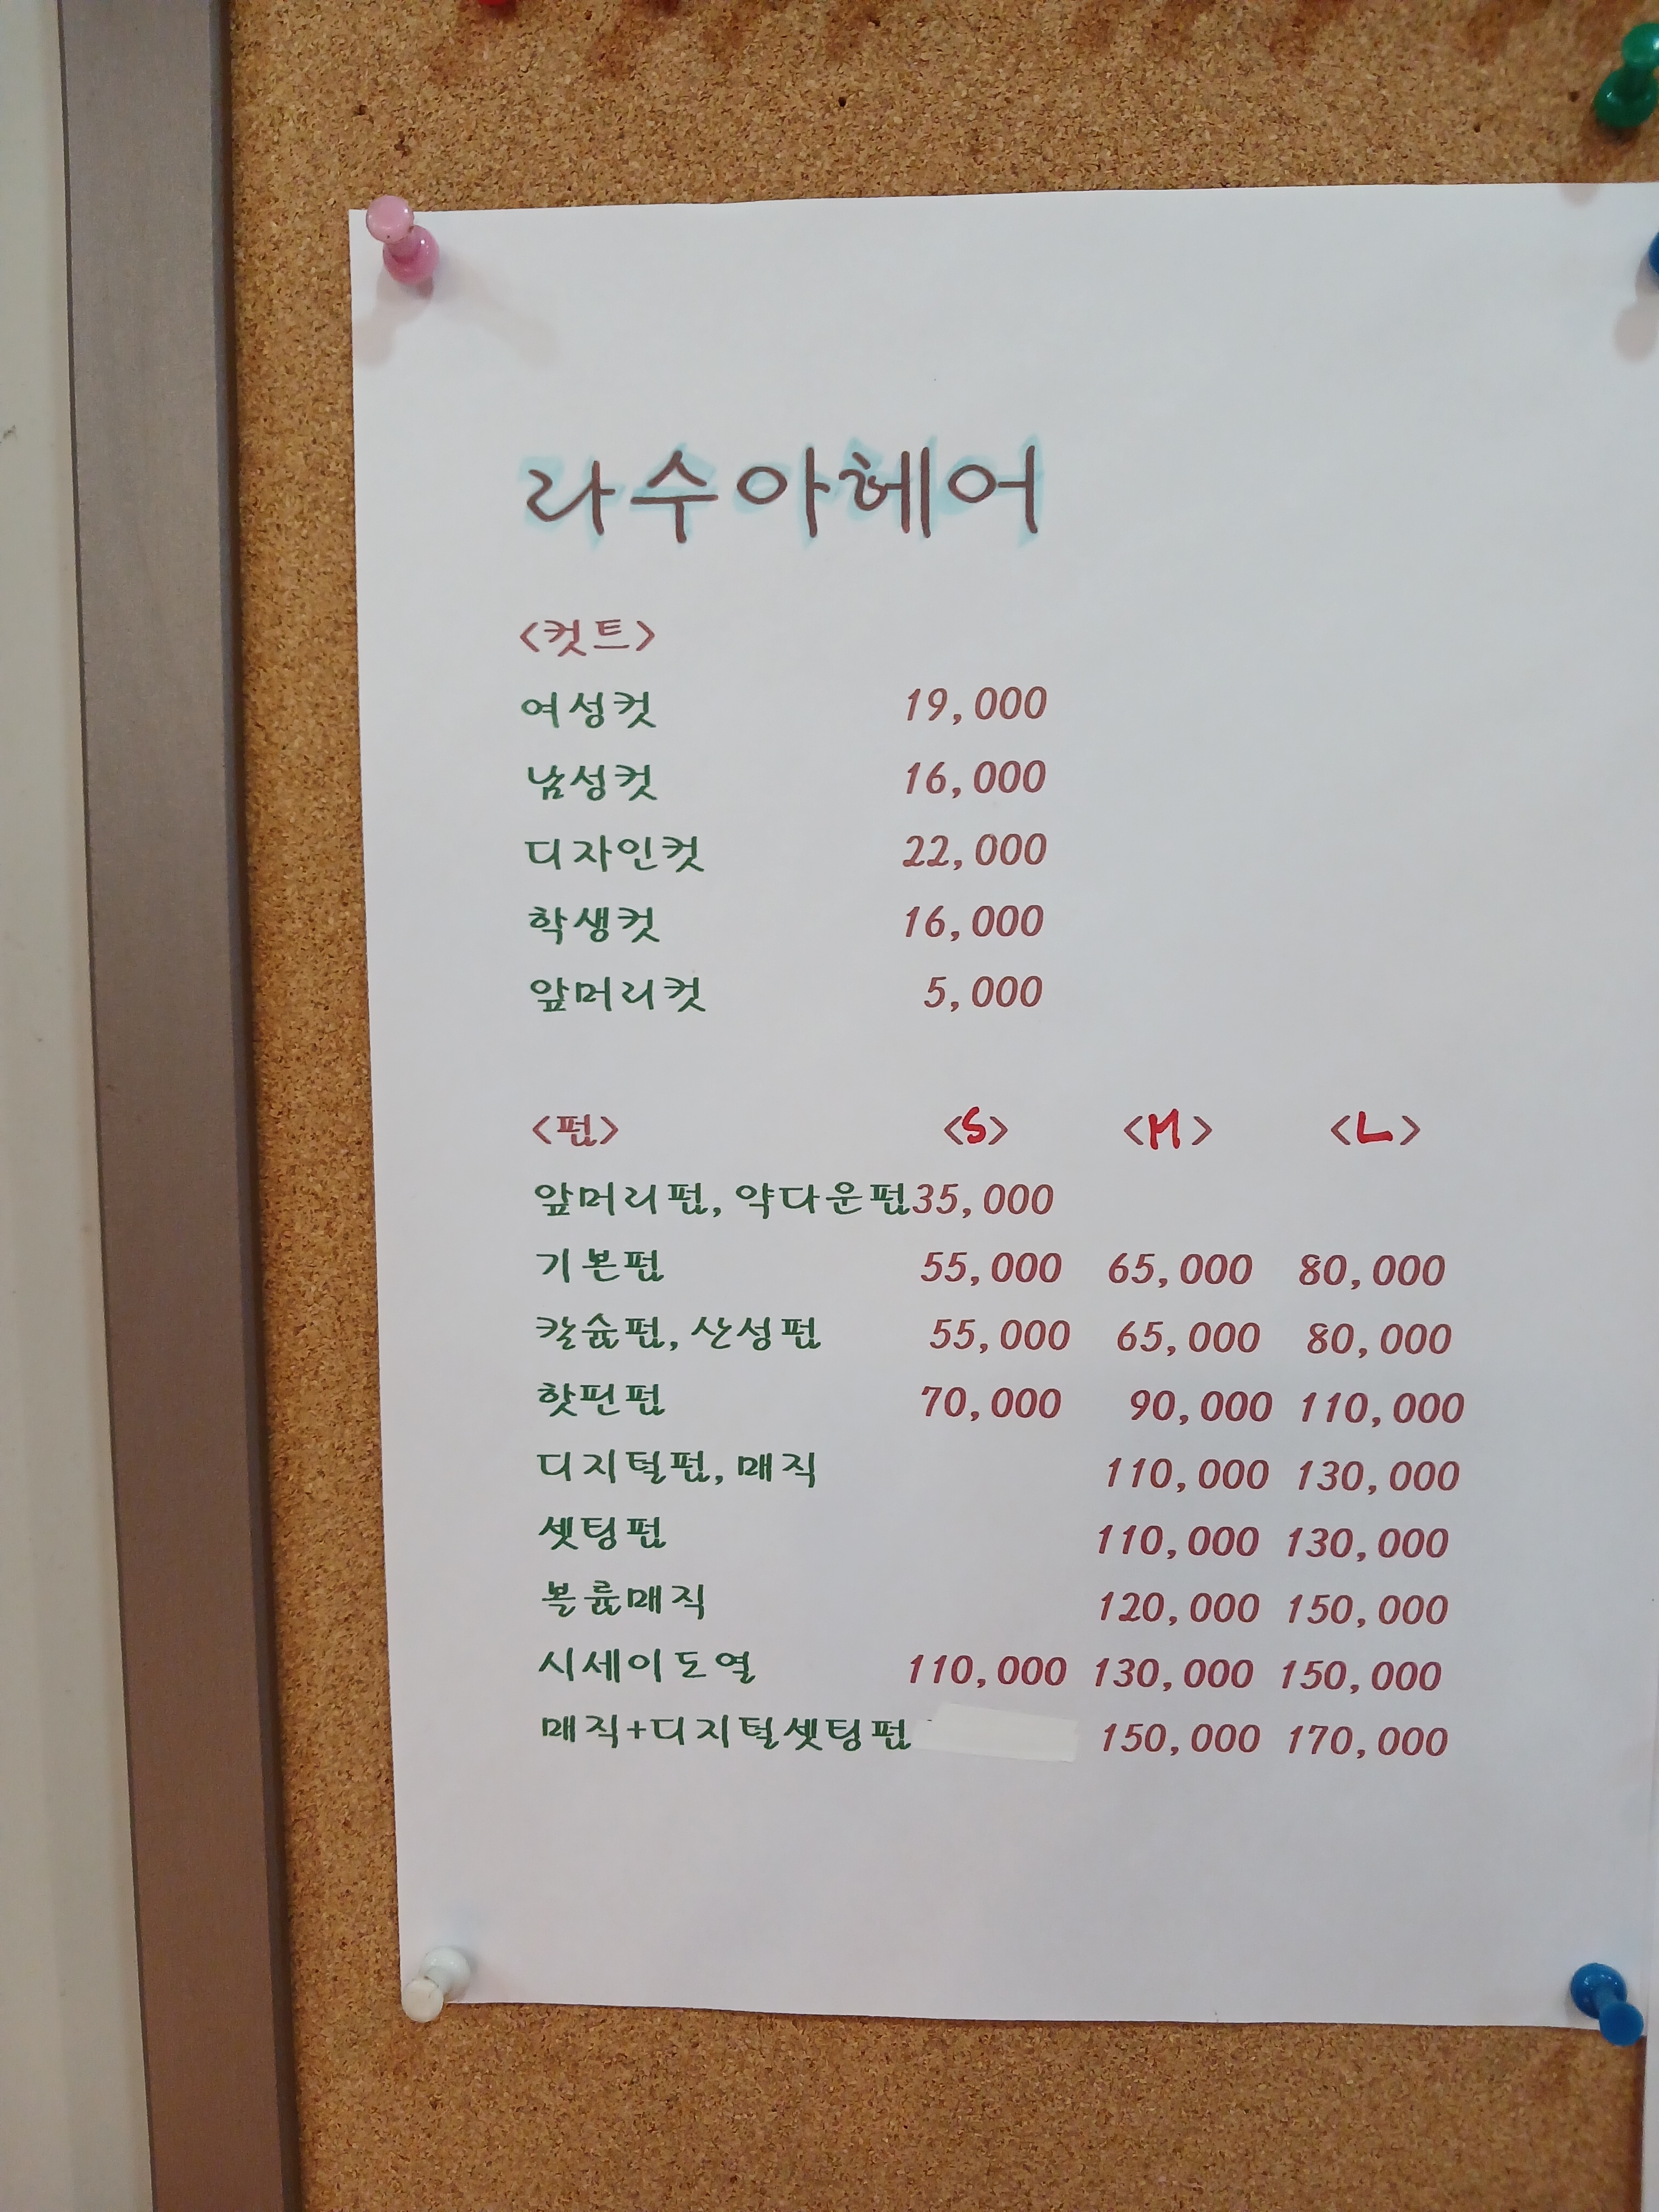 라수아헤어
<컷트>
여성컷 19,000
남성컷 16,000
디자인컷 22,000
학생컷 16,000
앞머리컷 5,000
<펌> <S> <M> <L>
앞머리펌, 약다운펌 35,000
기본펌 55,000 65,000 80,000
칼슘펌, 산성펌 55,000 65,000 80,000
핫핀펌 70,000 90,000 110,000
디지털펌, 매직 110,000 130,000
셋팅펌 110,000 130,000
볼륨매직 120,000 150,000
시세이도열 110,000 130,000 150,000
매직+디지털셋팅펌 150,000 170,000